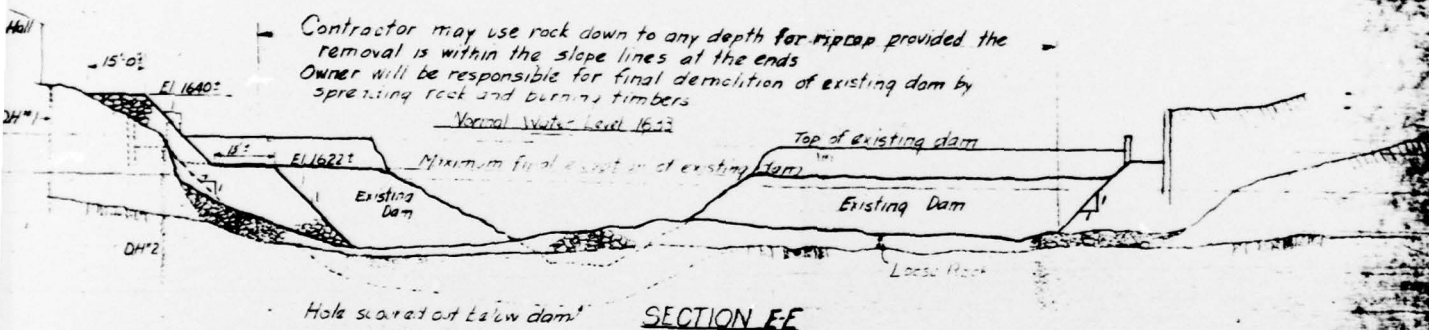 Hall
Contractor may use rock down to any depth for riprap provided the
removal is within the slope lines at the ends
Owner will be responsible for final demolition of existing dam by
spreading rock and burning timbers
15'-0"±
El 1640±
DH#1
Normal Water Level 1633
Top of existing dam
15'±
El 1622±
Maximum final elevation of existing dam
Existing
Dam
Existing Dam
DH#2
Loose Rock
Hole scoured out below dam
SECTION E-E